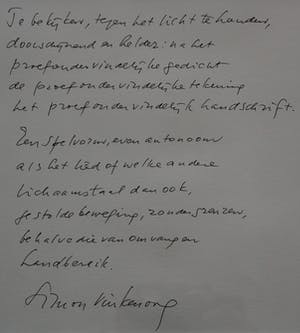 Te bekijken, tegen het licht te houden,
doordringend en helder: in het
proefondervindelijke gedicht
de proefondervindelijke tekening
het proefondervindelijk handschrift.
Een spelvorm, even autonoom
als het lied of welke andere
lichaamstaal dan ook,
gestolde beweging, zonder grenzen,
behalve die van omvang en
handbereik.
Simon Vinkenoog